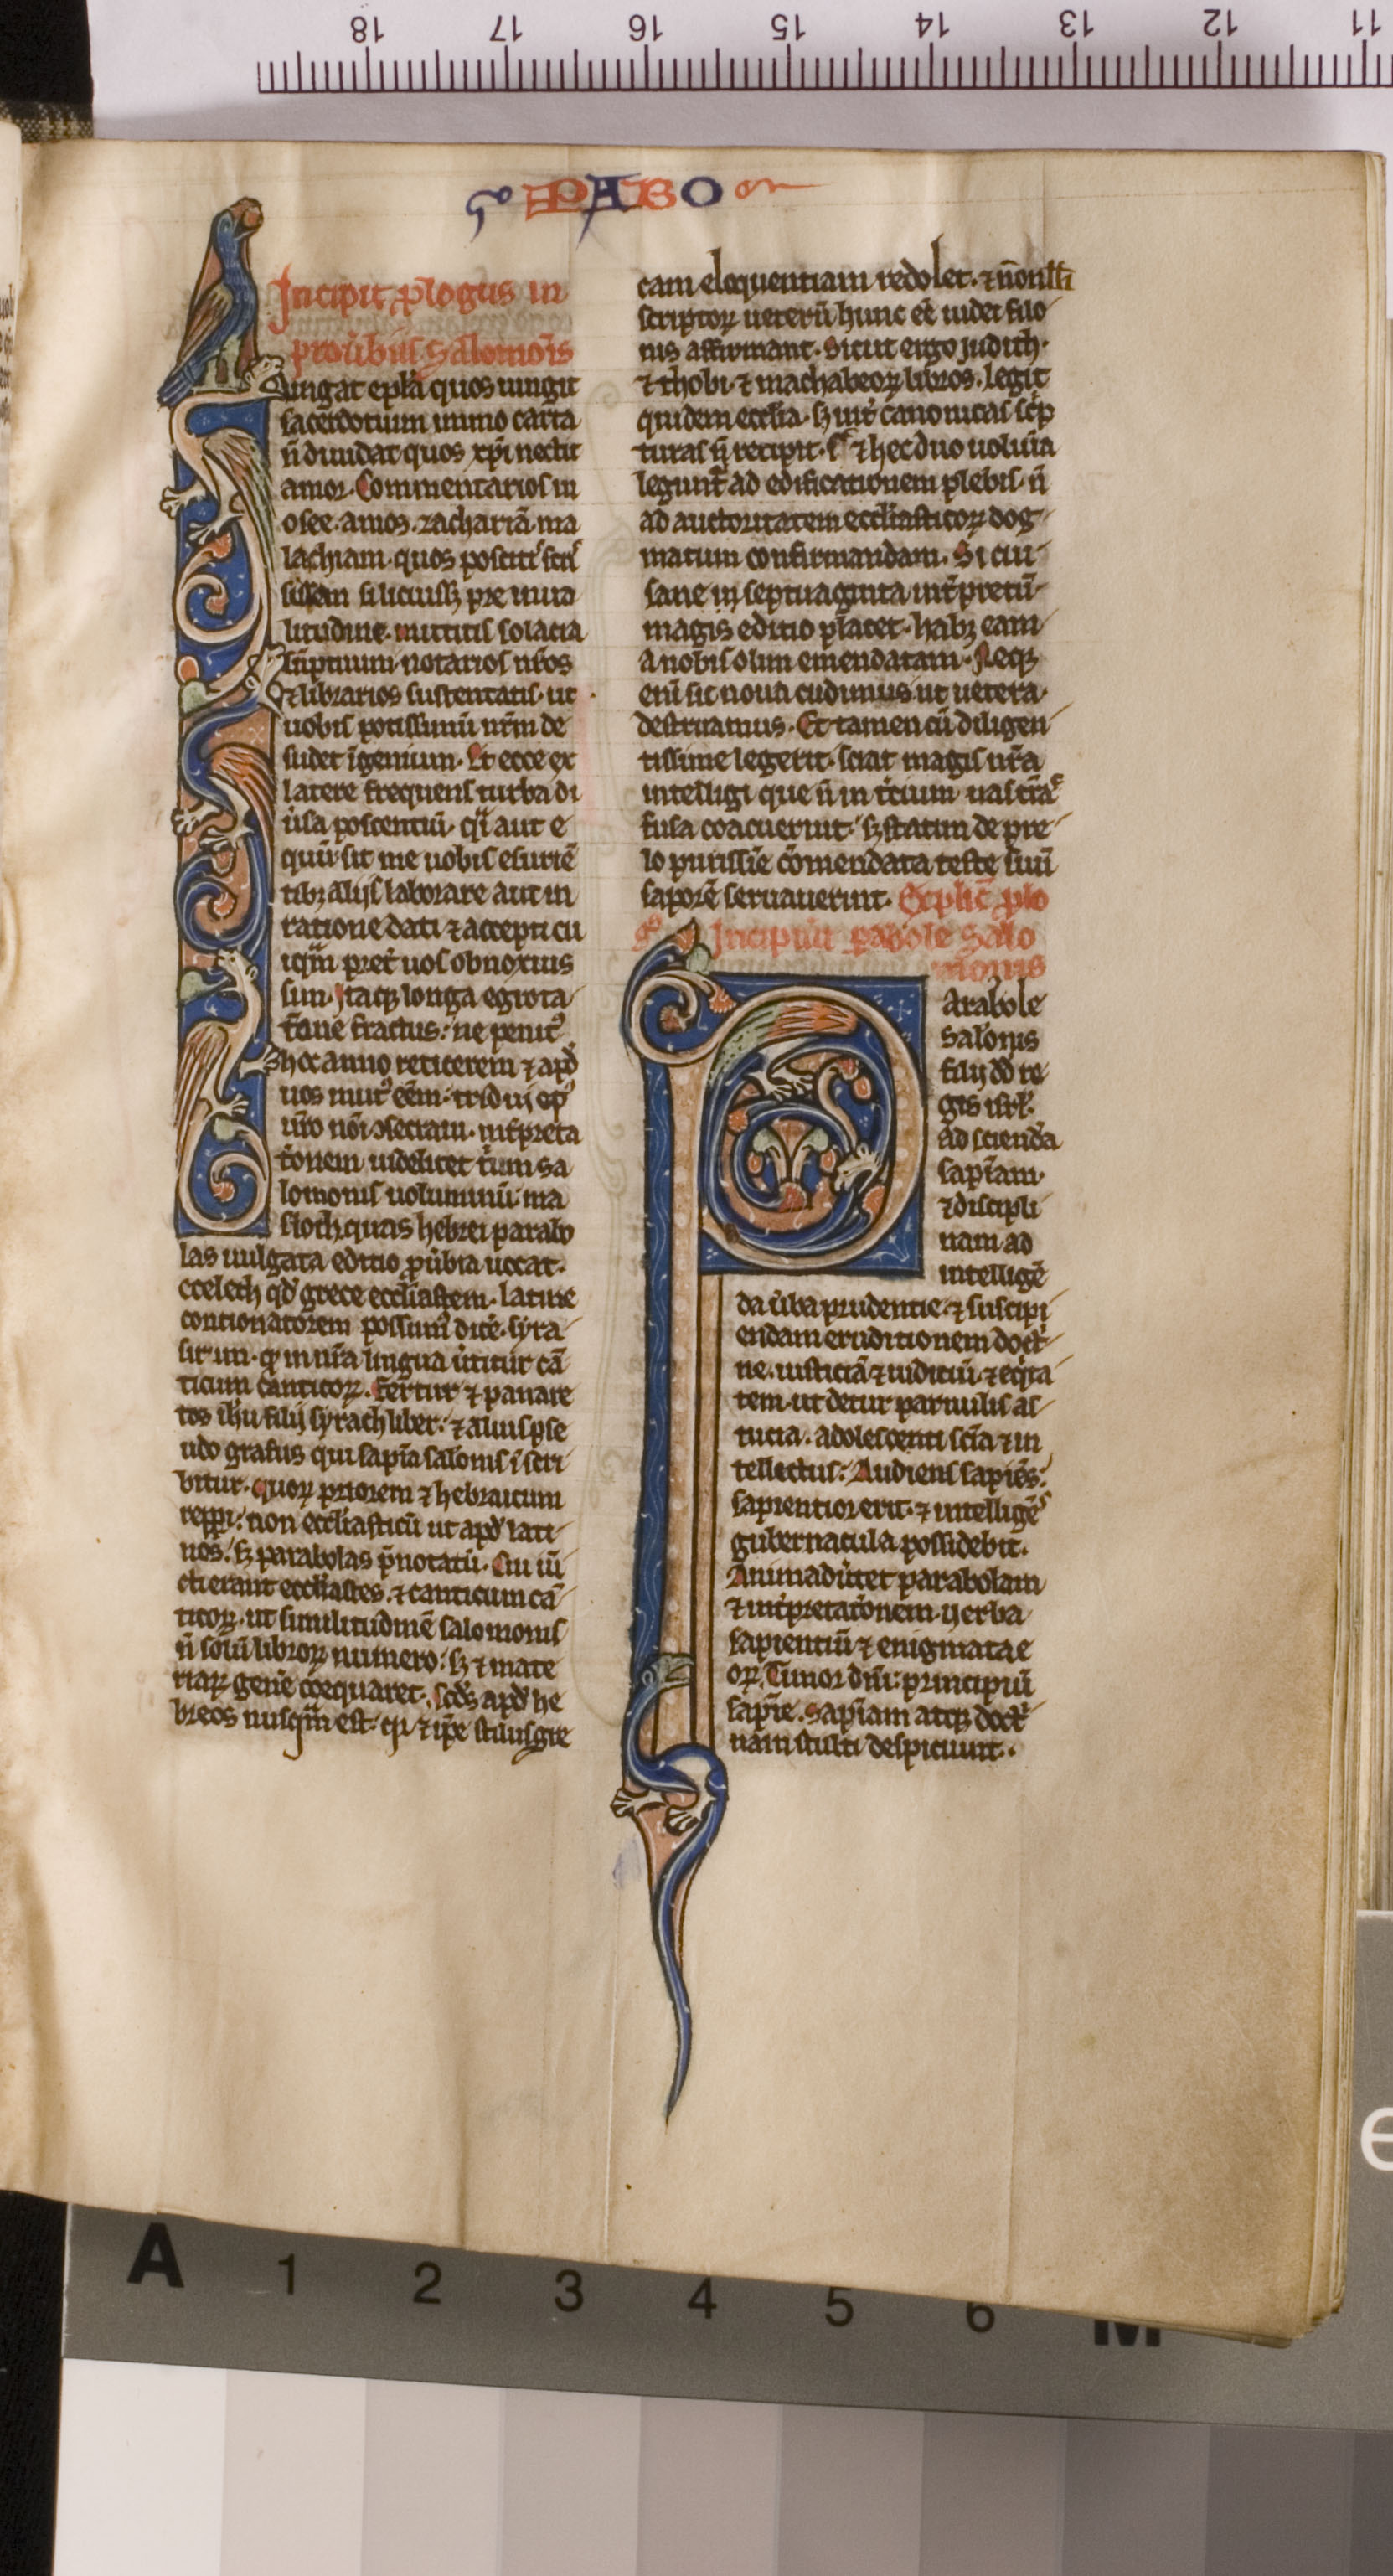 18 17 16 15 14 13 12 11
PABO
Incipit ꝓlogus in
prouͥbiis salomōis
ungat epła quos iungit
sacerdotium immo carta
ñ diuidat quos xp̄i nectit
amor. Commentarios in
osee. amos. zachariā. ma
lachiam. quos poscitis sc̄ri
sissem si licuissꝫ pre uali
litudine. mittitis solacia
sūptuum. notarios nr̄os
⁊ librarios sustentatis. ut
uobis potissimū nr̄m de
sudet īgenium. Et ecce ex
latere frequens turba di
ùsa poscentiū. qͣi aut e
quū sit me uobis esuriē
tibꝫ aliis laborare aut in
ratione dati ⁊ accepti cu
iqͣm pret̾ uos obnoxius
sim. Itaqꝫ longa egrota
t̄one fractus. ne penitꝰ
hoc anno reticerem ⁊ apd̾
uos mutꝰ eēm. tridui opꝰ
ur̄o nōi ↄsecraui. int̾preta
t̄onem uidelicet t̾ium sa
lomonis uoluminū. ma
sloth. quas hebrei parabo
las uulgata editio ꝓùbia uocat.
ccelech qd̾ grece eccl̄iastem. latine
contionatorem possumꝰ dic̾e. syra
sirim. qd̾ in nr̄a lingua ùtitur cā
ticum canticoꝝ. Fertur ⁊ panare
tos ih̄u filij syrach liber. ⁊ alius pse
udo grafus qui sapīa salōnis īscri
bitur. Quoꝝ priorem ⁊ hebraicum
repperi. non eccl̄iasticū ut apd̾ lati
nos. sꝫ parabolas p̄notatū. Cui iū
cti erant eccl̄iastes. ⁊ canticum cā
ticoꝝ. ut similitudinē salomonis
ñ solū libroꝝ numero. sꝫ ⁊ mate
riaꝝ gen̾e coequaret. Scd̄s apd̾ he
breos nusqͣm est. qr ⁊ ip̄e stilus gre
cam eloquentiam redolet. ⁊ nōnlli
scriptoꝝ ueterū hunc eē iudei filo
nis affirmant. Sicut ergo judith.
⁊ thobi. ⁊ machabeoꝝ libros. legit
quidem eccl̄ia. sꝫ int̾ canonicas sc̄p
turas ñ recipit. sͨ ⁊ hec duo uolūia
legunt̾ ad edificationem plebis. ñ
ad auctoritatem eccl̄iasticoꝝ dog
matum confirmandam. Si cui
sane in septuaginta int̾pretū
magis editio placet. habꝫ eam
a nobis olim emendatam. Neqꝫ
enī sic noua cudimus ut uetera
destruamus. Et tamen cū diligen
tissime legerit. sciat magis nr̄a
intelligi que ñ in t̾cium uas trās
fusa coacuerint. sꝫ statim de pre
lo purissīe cōmendata teste suū
saporē seruauerint. Explic̄ ꝓlo
gꝰ Incipiūt ꝑabole Salo
monis
Arabole
salōnis
filij dd̄ re
gis isrł.
ad sciendā
sapīam.
⁊ discipli
nam ad
intelligē
da ùba prudentie. ⁊ suscipi
endam eruditionem doctͥ
ne. iusticiā ⁊ iudiciū. ⁊ eqͥta
tem. ut detur paruulis as
tucia. adolescenti scīa ⁊ in
tellectus. Audiens sapiēs.
sapientior erit. ⁊ intelligēs
gubernacula possidebit.
Animadùtet parabolam
⁊ int̾pretat̄onem. uerba
sapientiū ⁊ enigmata e
oꝝ. Timor dn̄i. principiū
sapīe. Sapīam atqꝫ doctͥ
nam stulti despiciunt.
A 1 2 3 4 5 6 M
e